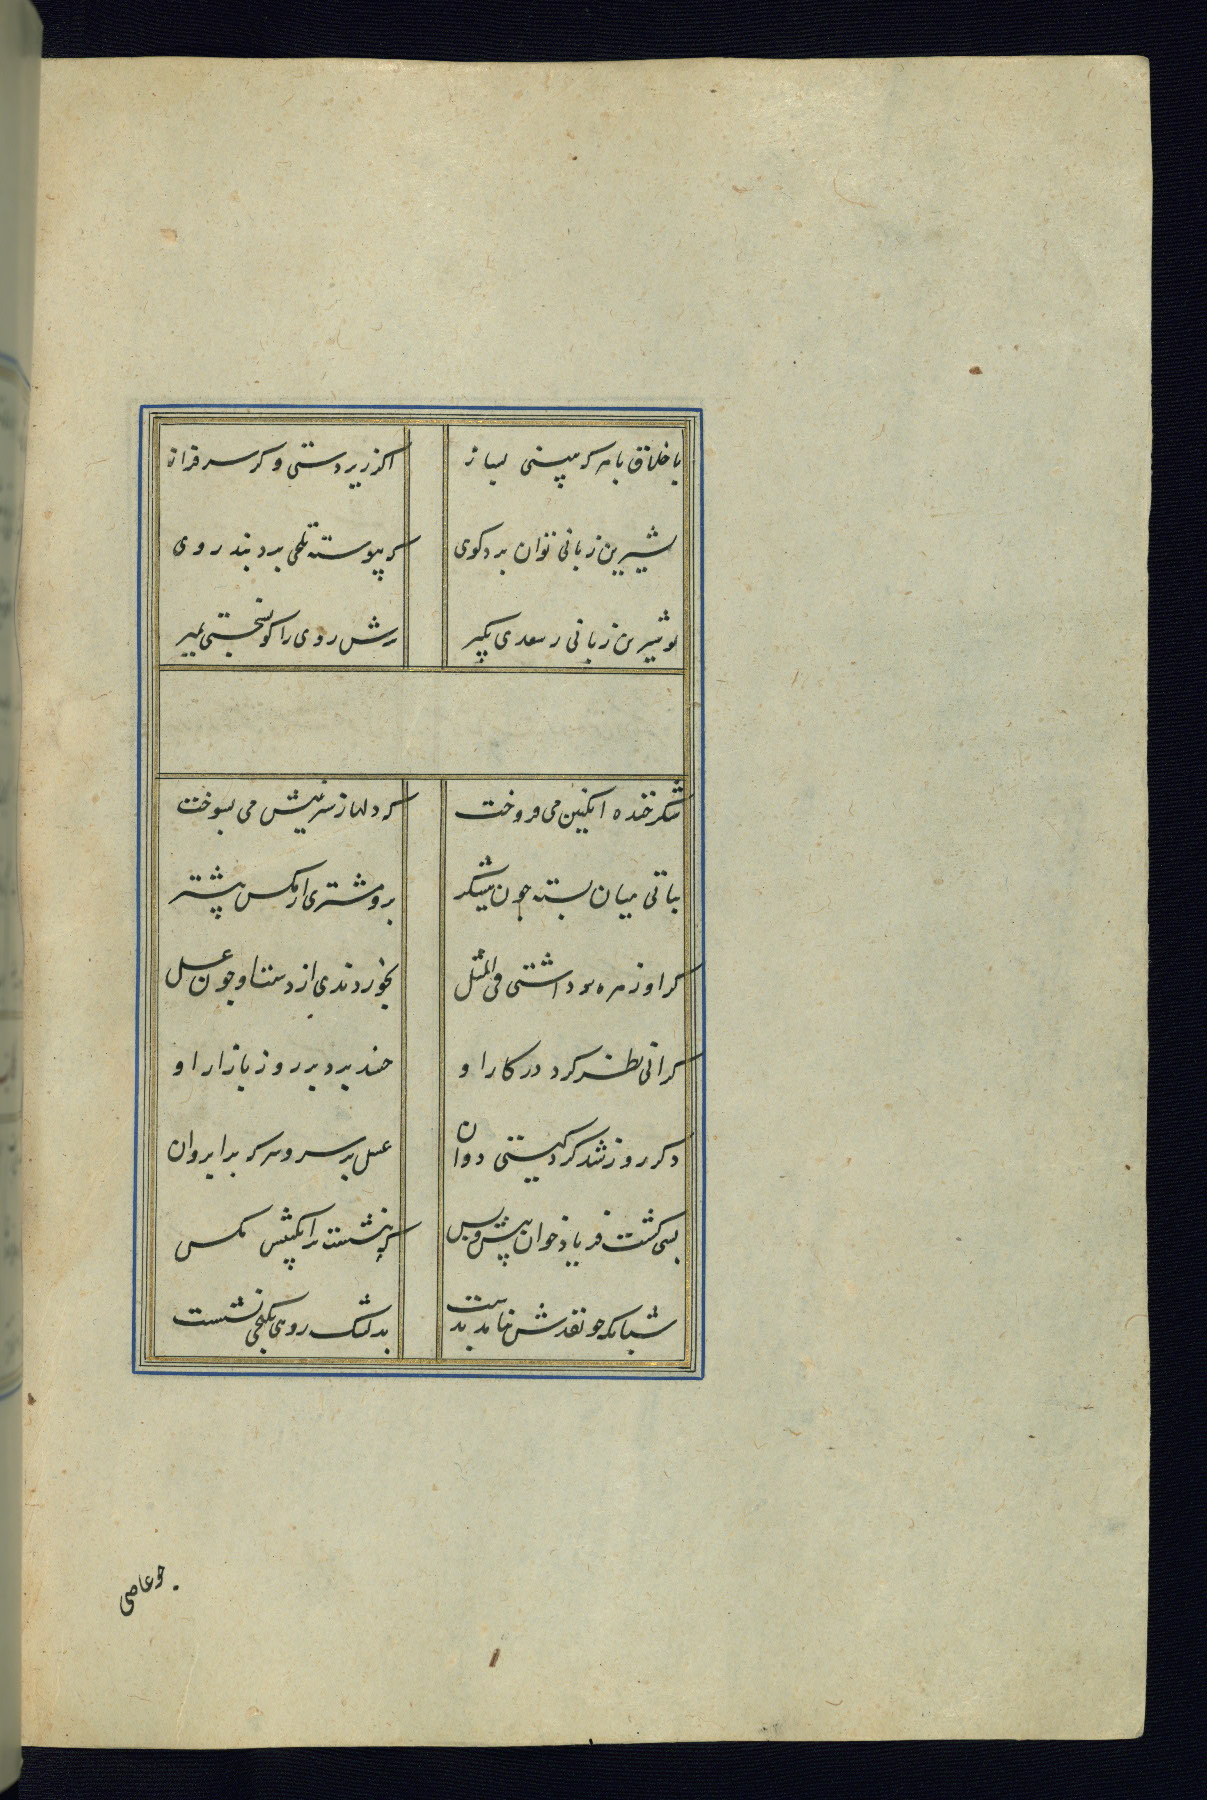 باخلاق با هرکه بینی بساز اکر زیردستی وکر سرفراز
بشیرین زبانی توان برد کوی که پیوسته تلخی برد تندروی
تو شیرین زبانی ز سعدی بکیر ترش روی را کو بسختی بمیر
شکرخنده انکبین می فروخت که دلها ز شیرینیش می بسوخت
نباتی میان بسته چون نیشکر برو مشتری از مکس بیشتر
کر او زهر برداشتی فی المثل بخوردندی از دست او چون عسل
کرانی نظر کرد در کار او حسد برد بر روز بازار او
دکر روز شد کرد کیتی دوان عسل بر سر و سرکه بر ابروان
بسی کشت فریاد خوان پیش و پس که ننشست بر انکبینش مکس
شبانکه چو نقدش نیامد بدست بدلتنک رویی بکنجی نشست
چو عاصی